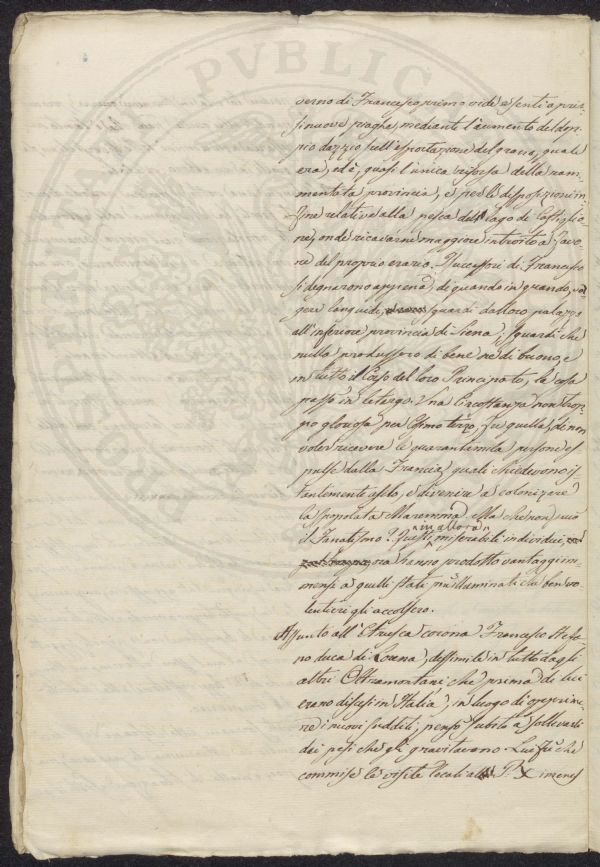 verno di Francesco primo vide esenti a per
si nuove pragha, mediante l'aumento del dop-
pio dazzio sull'esportazione del grano, quale
era, ed è, quasi l'unica risorsa della ram-
mentata provincia, e per le disposizioni in
fine relative alla pesca del Lago de Castiglio
ne, onde ricavarne maggiore introito a favo
re del proprio erario. I successori di Francesco
si degnerono appena, di quando in quando, vol
gere languide, sguardi dalloro palazzo
all'inferiore provincia di Siena, sguardi che
nulla produssero di bene ne di buono, e
in tutto il Corso del loro Principato, la cosa
passò in letargo. Una Circostanza non trop
po gloriosa per Cosimo terzo, fu quella, di non
voler ricevere le quarantamila persone es
pulse dalla Francia, quali chiedevono is
tantemente asilo, e divenire a colonizare
la spopolata Maremma, ma che non può
il Fanatismo? Questi in allora miserabili individui,
hanno prodotto vantaggi im-
mensi a quelli stati più illuminati che ben vo-
lentieri gli accolsero.
Assunto all'Etrusca corona Francesco Stefa
no duca di Lorena, dissimile in tutto dagli
altri Oltramontani che prima di lui
erano discesi in Italia, in luogo di opprime
re i nuovi sudditi, pensò subito a sollevarli
dai pesi che gli gravitavano. Lui fù che
commise le visite locali al P. Ximenes
PVBLICA